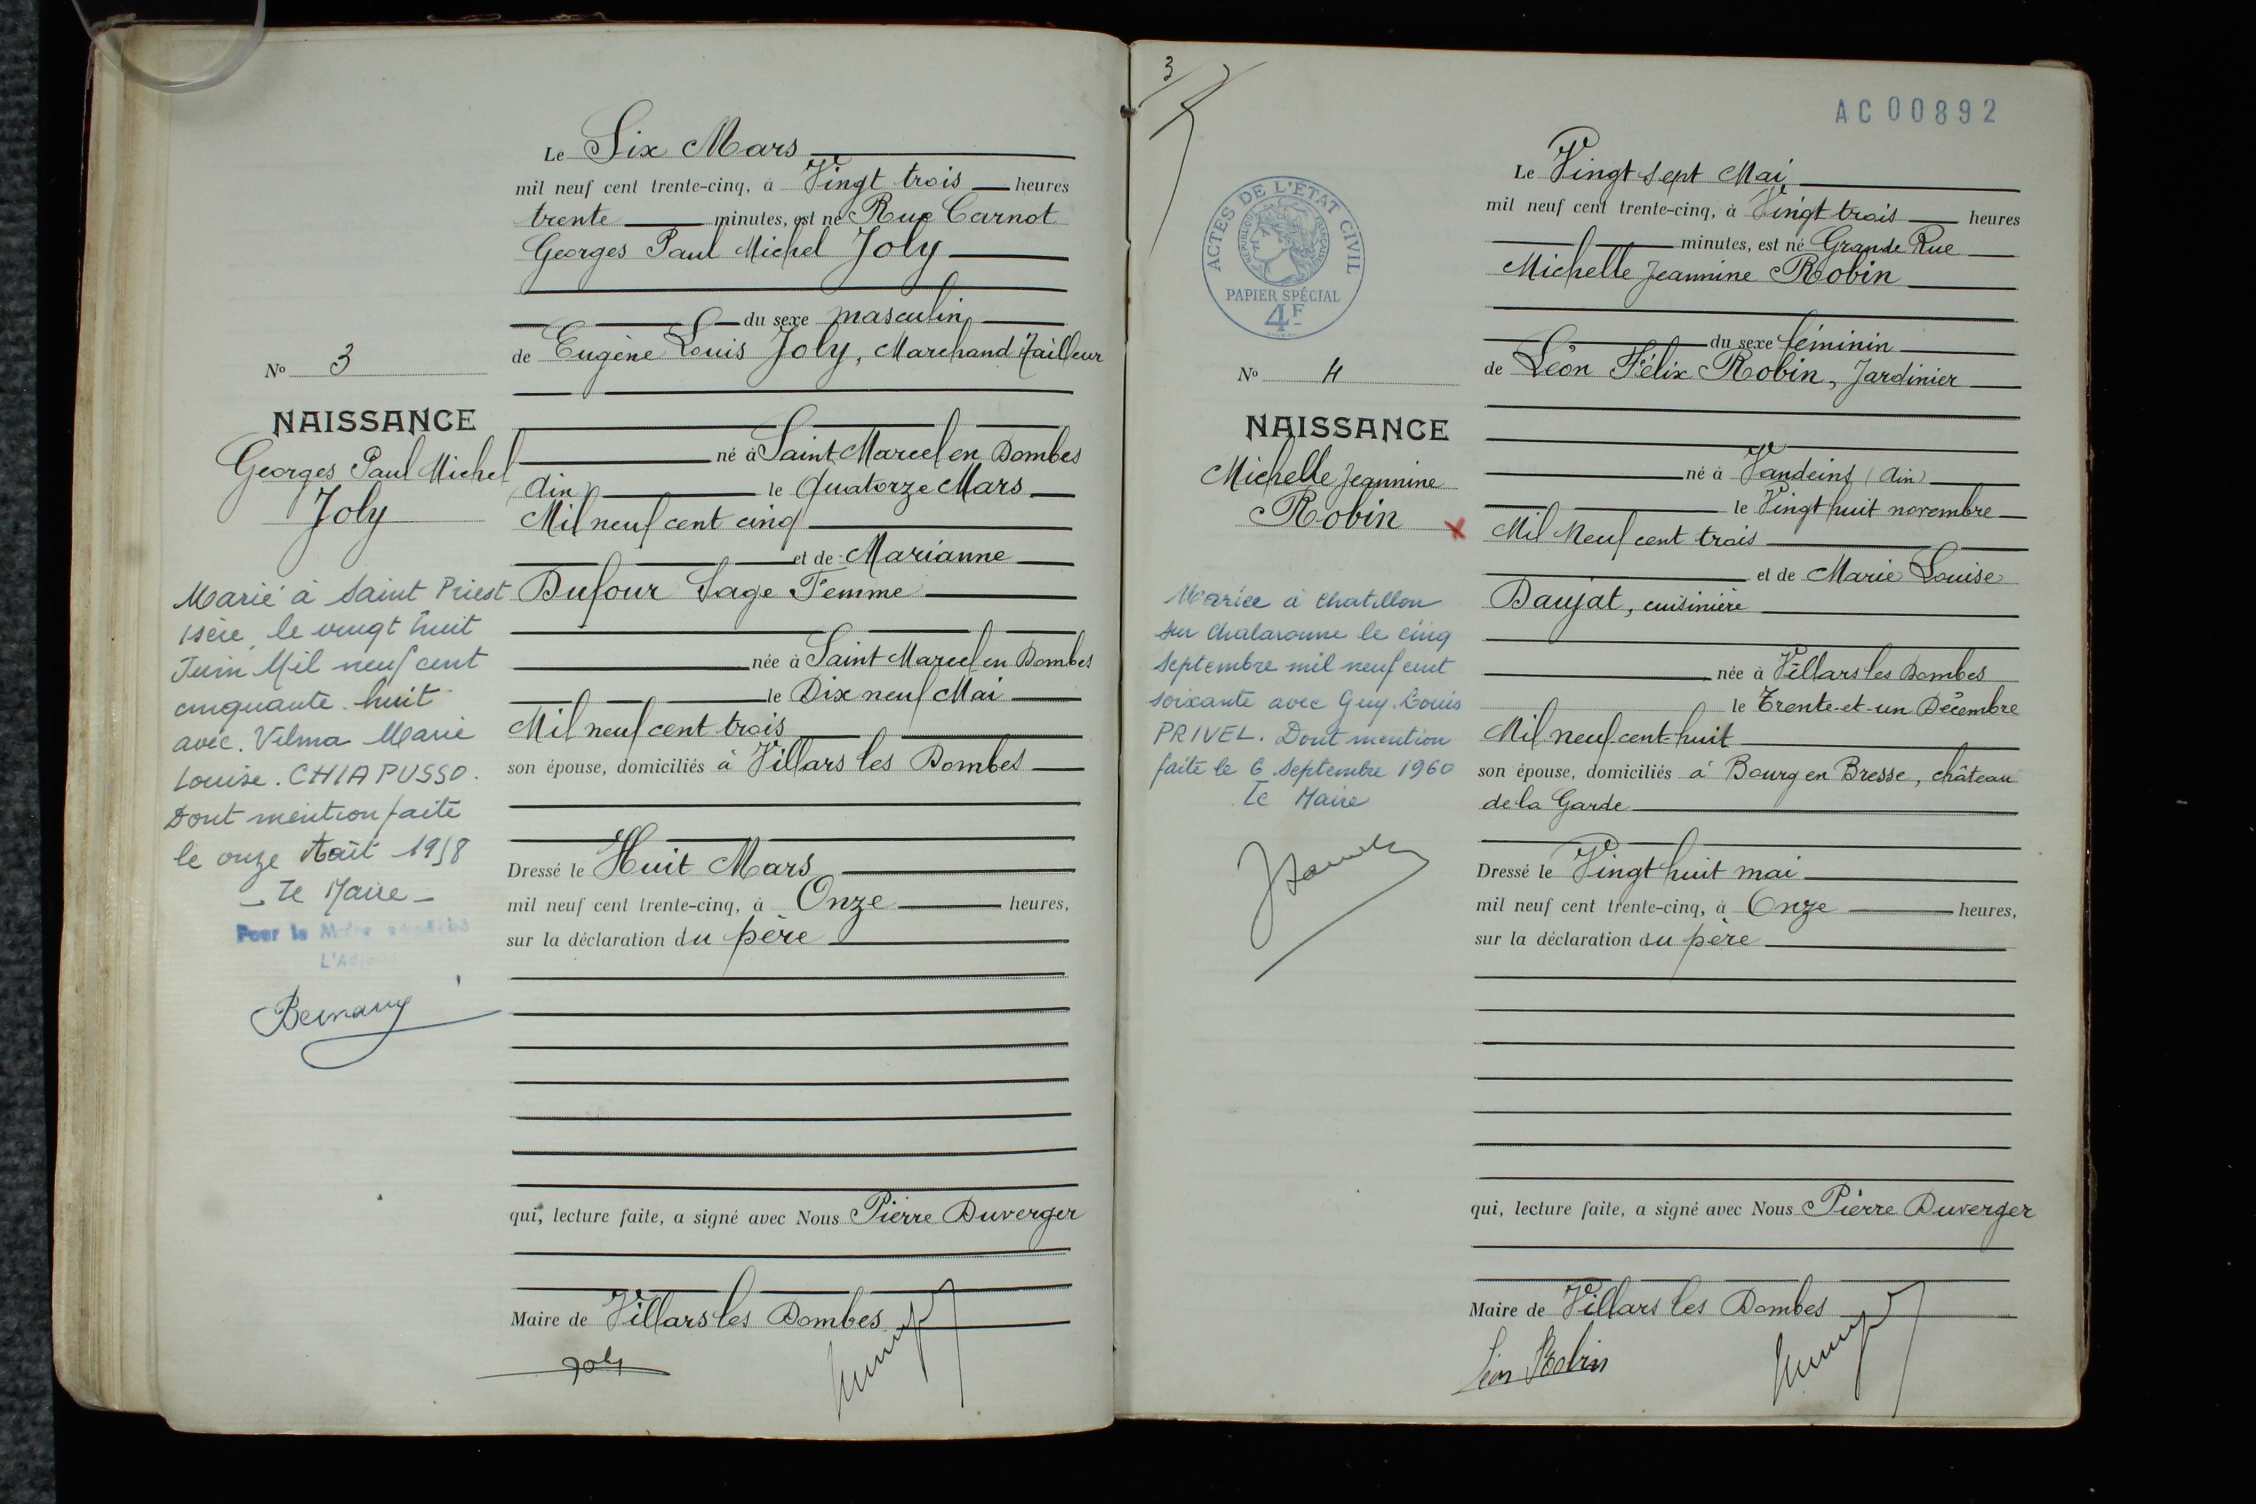 Le Six Mars
mil neuf cent trente-cinq, à Vingt trois heures
trente minutes, est né Rue Carnot
Georges Paul Michel Joly
du sexe masculin
de Eugène Louis Joly, Marchand Tailleur
No 3
NAISSANCE
Georges Paul Michel
Joly
né à Saint Marcel en Dombes
(Ain) le Quatorze Mars
Mil neuf cent cinq
et de Marianne
Dufour Sage Femme
née à Saint Marcel en Dombes
le Dix neuf Mai
Mil neuf cent trois
son épouse, domiciliés à Villars les Dombes
Marié à Saint Priest
Isère, le vingt huit
Juin Mil neuf cent
cinquante huit
avec. Velma Marie
Louise. CHIAPUSSO.
Dont mention faite
le onze Août 1958
- Le Maire -
Pour le Maire
L'Adjoint
Dressé le Huit Mars
mil neuf cent trente-cinq, à Onze heures,
sur la déclaration du père
qui, lecture faite, a signé avec Nous Pierre Duverger
Maire de Villars les Dombes
Joly
3
AC 00892
ACTES DE L'ETAT CIVIL
REPUBLIQUE FRANÇAISE
PAPIER SPÉCIAL
4F
Le Vingt sept Mai
mil neuf cent trente-cinq, à Vingt trois heures
minutes, est né Grande Rue
Michelle Jeannine Robin
du sexe féminin
de Léon Félix Robin, Jardinier
No 4
NAISSANCE
Michelle Jeannine
Robin
né à Vandeins (Ain)
le Vingt huit novembre
Mil Neuf cent trois
et de Marie Louise
Daujat, cuisinière
née à Villars les Dombes
le Trente-et-un Décembre
Mil neuf cent-huit
son épouse, domiciliés à Bourg en Bresse, château
de la Garde
Mariée à Chatillon
sur Chalaronne le cinq
Septembre mil neuf cent
soixante avec Guy Louis
PRIVEL. Dont mention
faite le 6 Septembre 1960
Le Maire
Dressé le Vingt huit mai
mil neuf cent trente-cinq, à Onze heures,
sur la déclaration du père
qui, lecture faite, a signé avec Nous Pierre Duverger
Maire de Villars les Dombes
Léon Robin